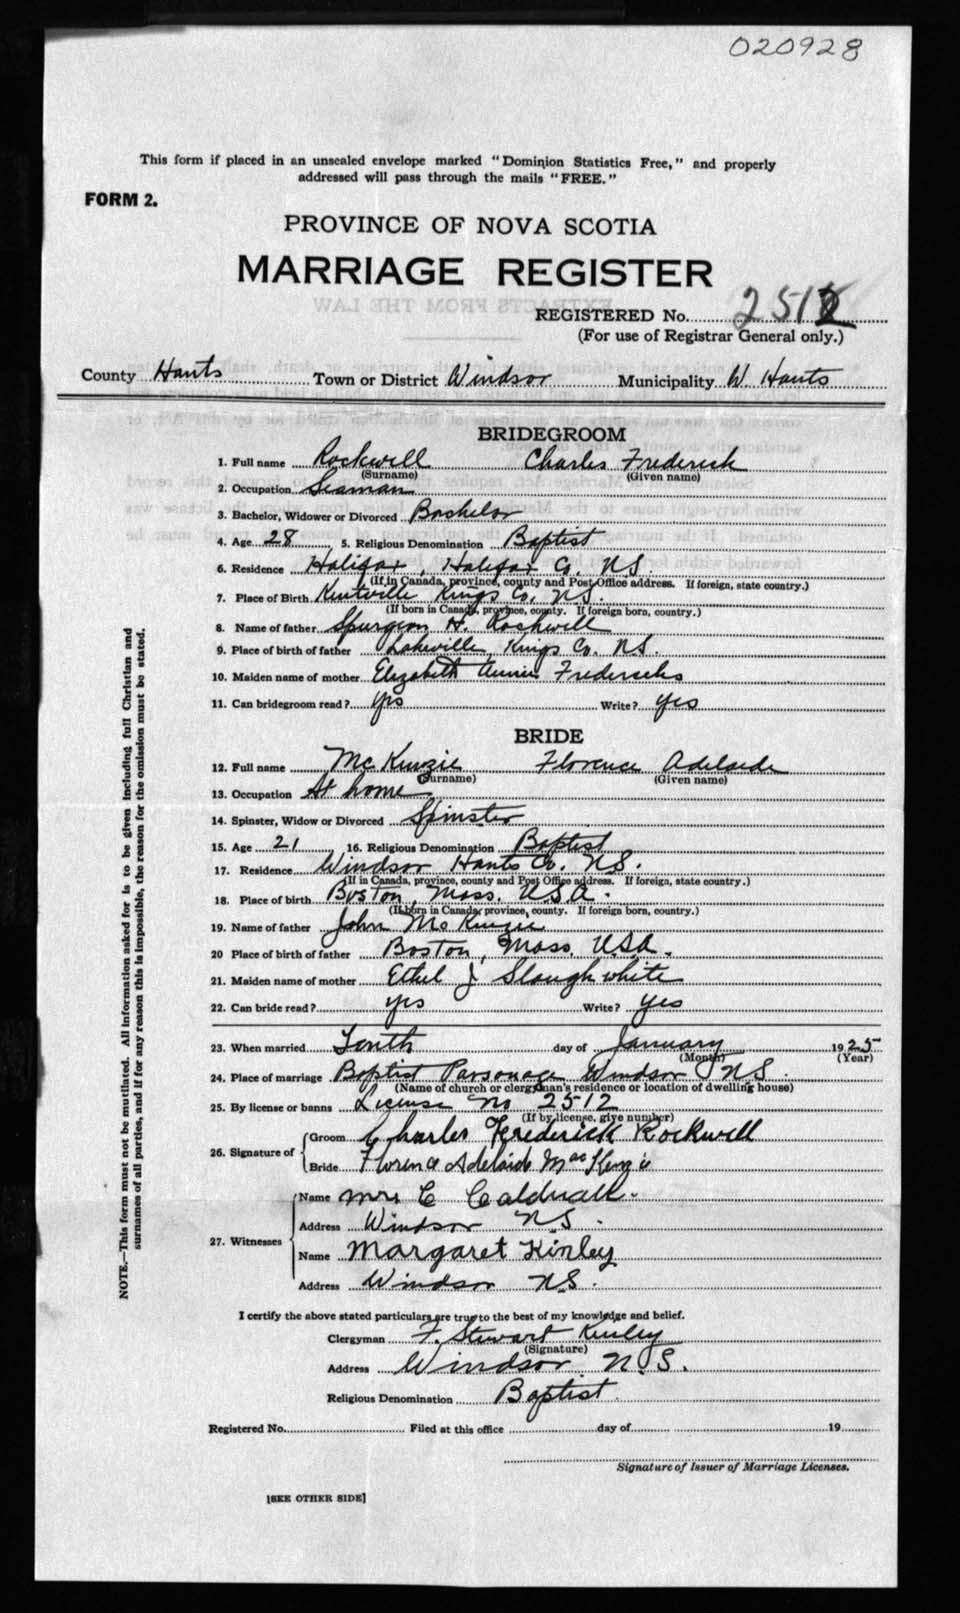 020928
This form if placed in an unsealed envelope marked "Dominion Statistics Free," and properly
addressed will pass through the mails "FREE."
FORM 2.
PROVINCE OF NOVA SCOTIA
MARRIAGE REGISTER
REGISTERED No. 2512
(For use of Registrar General only.)
County Hants Town or District Windsor Municipality W. Hants
BRIDEGROOM
1. Full name Rockwell Charles Frederick
(Surname) (Given name)
2. Occupation Seaman
3. Bachelor, Widower or Divorced Bachelor
4. Age 28 5. Religious Denomination Baptist
6. Residence Halifax, Halifax Co. N.S.
(If in Canada, province, county and Post Office address. If foreign, state country.)
7. Place of Birth Kentville Kings Co. N.S.
(If born in Canada, province, county. If foreign born, country.)
8. Name of father Spurgeon H. Rockwell
9. Place of birth of father Lakeville, Kings Co. N.S.
10. Maiden name of mother Elizabeth Annie Fredericks
11. Can bridegroom read? yes Write? yes
BRIDE
12. Full name McKenzie Florence Adelaide
(Surname) (Given name)
13. Occupation At home
14. Spinster, Widow or Divorced Spinster
15. Age 21 16. Religious Denomination Baptist
17. Residence Windsor Hants Co. N.S.
(If in Canada, province, county and Post Office address. If foreign, state country.)
18. Place of birth Boston, Mass. U.S.A.
(If born in Canada, province, county. If foreign born, country.)
19. Name of father John McKenzie
20 Place of birth of father Boston, Mass. U.S.A.
21. Maiden name of mother Ethel J Slaughwhite
22. Can bride read? yes Write? yes
23. When married Tenth day of January 1925
(Month) (Year)
24. Place of marriage Baptist Parsonage Windsor N.S.
(Name of church or clergyman's residence or location of dwelling house)
25. By license or banns License No 2512
(If by license, give number)
26. Signature of
Groom Charles Frederick Rockwell
Bride Florence Adelaide MacKenzie
27. Witnesses
Name Mrs C Caldwell.
Address Windsor N.S.
Name Margaret Kinley
Address Windsor N.S.
I certify the above stated particulars are true to the best of my knowledge and belief.
Clergyman F. Stewart Kinley
(Signature)
Address Windsor N.S.
Religious Denomination Baptist
Registered No. Filed at this office day of 19
Signature of Issuer of Marriage Licenses.
[SEE OTHER SIDE]
NOTE.—This form must not be mutilated. All information asked for is to be given including full Christian and
surnames of all parties, and if for any reason this is impossible, the reason for the omission must be stated.